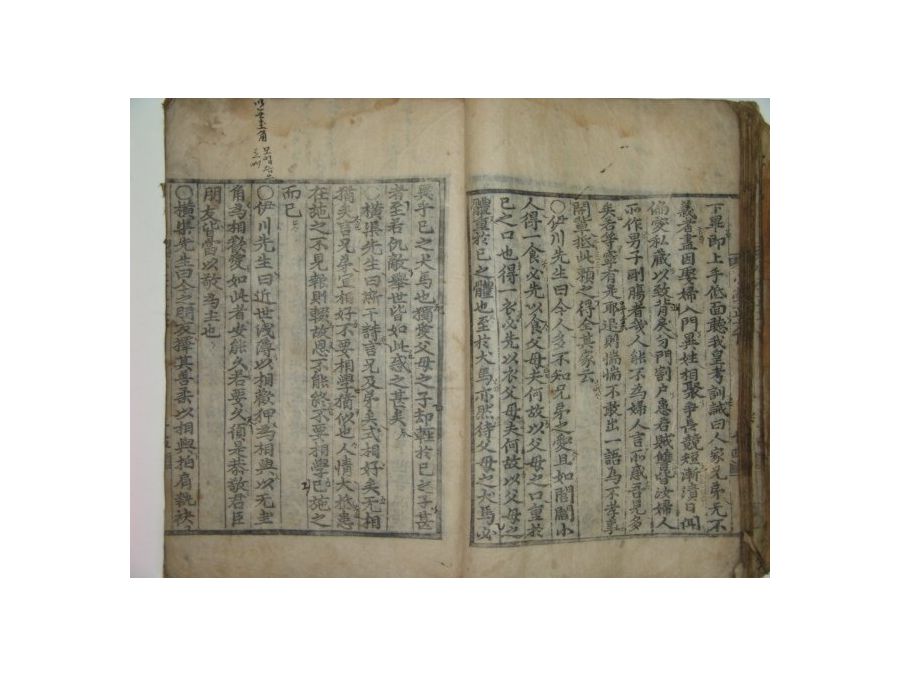 下畢即上手低面聽我皇考訓誡曰人家兄弟无不
義者盡因娶婦入門異姓相聚爭長競短漸漬日聞
偏愛私藏以致背戾分門割戶患若賊讎皆汝婦人
所作男子剛腸者幾人能不為婦人言所惑吾見多
矣若等寧有是耶退則惴惴不敢出一語為不孝事
開輩抵此賴之得全其家云
〇伊川先生曰今人多不知兄弟之愛且如閭閻小
人得一食必先以食父母夫何故以父母之口重於
己之口也得一衣必先以衣父母夫何故以父母之
體重於己之體也至於犬馬亦然待父母之犬馬必
異乎己之犬馬也獨愛父母之子却輕於己之子甚
者至若仇敵舉世皆如此惑之甚矣
〇橫渠先生曰斯干詩言兄及弟矣式相好矣无相
猶矣言兄弟宜相好不要相學猶似也人情大抵患
在施之不見報則輟故恩不能終不要相學己施之
而已
以无圭角
〇伊川先生曰近世淺薄以相歡狎為相與以无圭
角為相歡愛如此者安能久若要久須是恭敬君臣
朋友皆當以敬為主也
〇橫渠先生曰今之朋友擇其善柔以相與拍肩執袂